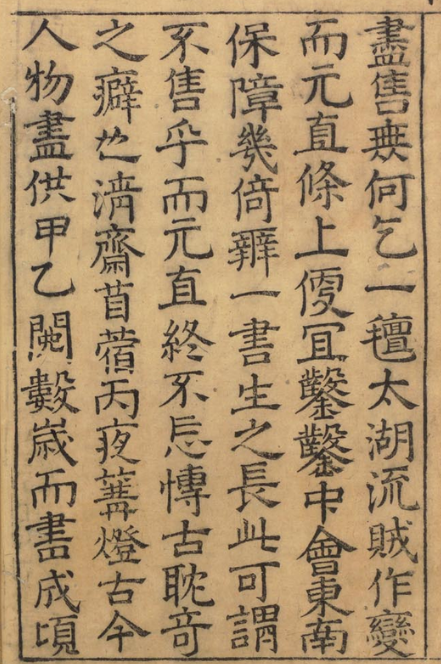 盡售無何乞一氊太湖流賊作變
而元直條上便冝鑿鑿中會東南
保障幾倚辦一書生之長此可謂
不售乎而元直終不忘愽古耽竒
之癖濟齋苜蓿丙夜篝燈古今
人物盡供甲乙閱數歲而書成頃